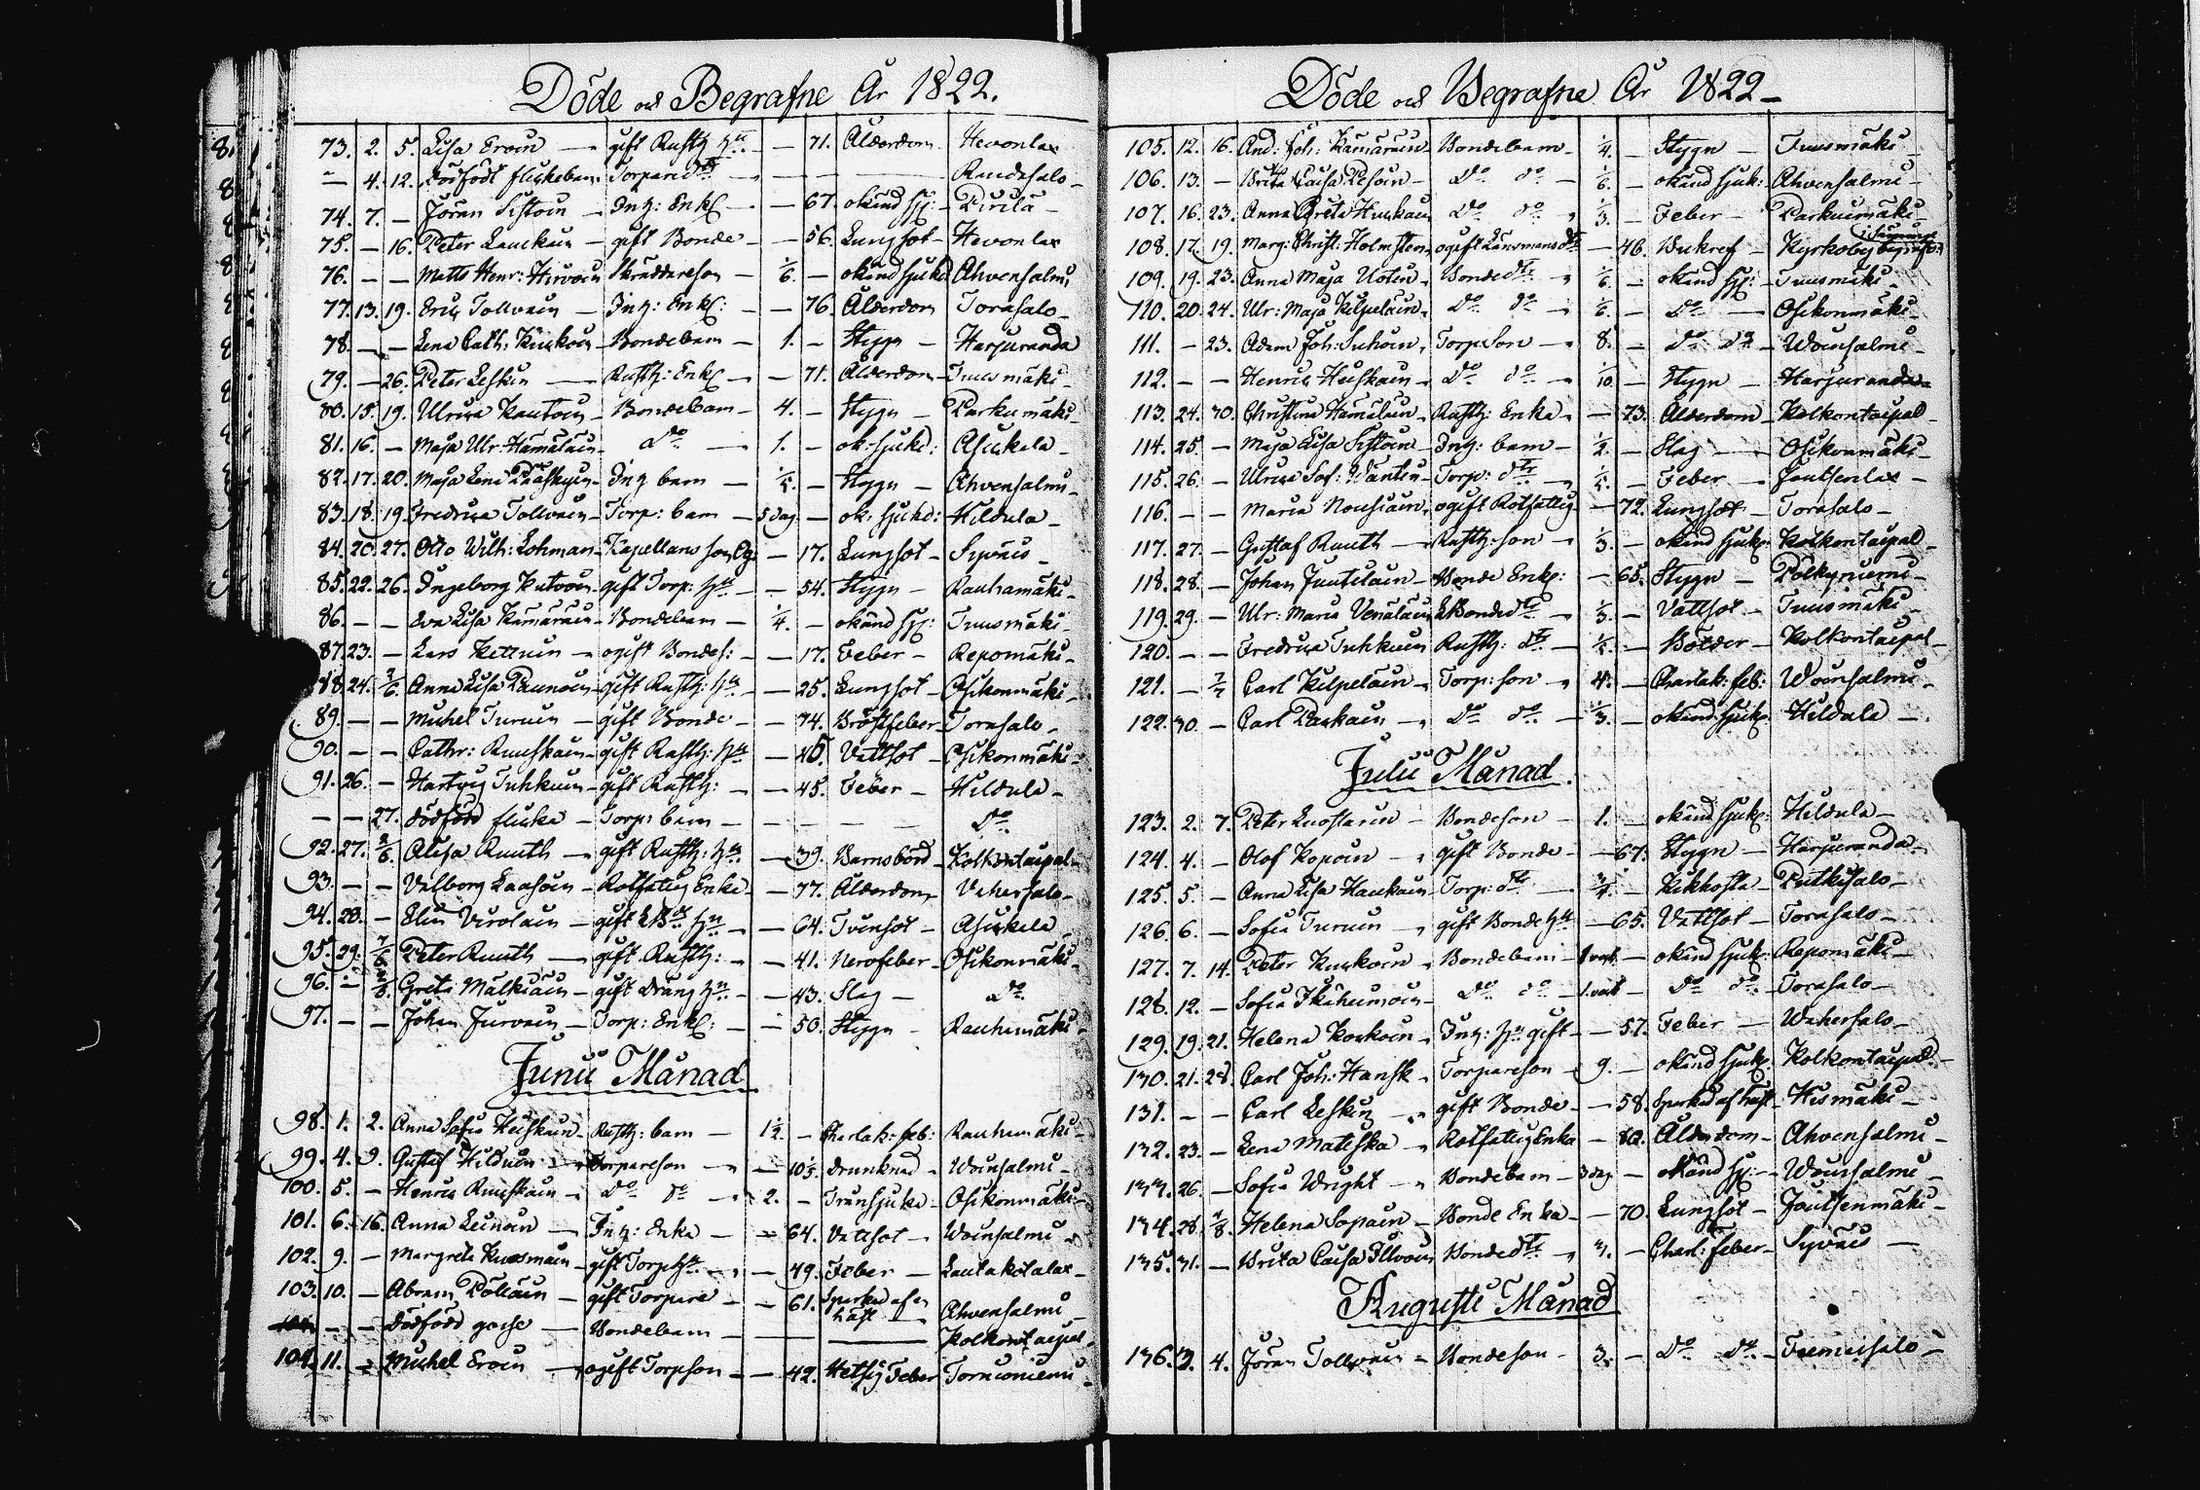 Döde och Begrafne År 1822.
73. 2. 5. Lisa Eroin — gift Rusth: h:u — 71. Ålderdom Hevonlax
— 4. 12. Dödfödt flickebarn Torpare Randasalo
74. 7. — Jöran Sistoin — Inh: Enkl — 67. okänd sj: Pirilä
75. — 16. Peter Lauckain — gift Bonde — 56. Lungsot — Hevonlax
76. — — Matts Henr: Hirvoin Skräddareson — 1/6. — okänd sjukd Ahvensalmi
77. 13. 19. Eric Tollvain — Inh: Enkl: — 76 Ålderdom Torasalo
78. — — Lena Cath: Kiiskoin Bondebarn — 1. — Stygn — Harjuranda
79. — 26. Peter Leskin — Rusth: Enkl — 71. Ålderdom Tuusmäki
80. 15. 19. Ulrica Kautoin — Bondebarn — 4. — Stygn — Parkumäki
81. 16. — Maja Ulr: Hämäläin D:o — 1. — ok: sjukd: Asickala
82. 17. 20. Maja Lena Pääskyin Inh barn — — Stygn — Ahvensalmi
83. 18. 19. Fredrica Tollvain Torp: barn — 5 dag — ok: sjukd: Hildula
84. 20. 27. Otto Wilh: Lohman Kapellans son Og: — 17. Lungsot — Syväis
85. 22. 26. Ingeborg Kutvoin gift Torp: h:u — 54. Stygn — Rauhamäki
86. — — Eva Lisa Kämäräin Bondebarn — 1/4. — okänd sj: Tuusmäki
87. 23. — Lars Kettuin — ogift Bondes: — 17. Feber — Repomäki
88. 24. 2/6 Anna Lisa Paunoin gift Rusth: h:u — 25. Lungsot — Osikonmäki
89. — — Michel Turuin — gift Bonde — 74. Bröstfeber Torasalo
90. — — Cathr: Ruuskain gift Rusth: h:u — 45. Vattsot — Osikonmäki
91. 26. — Hartvig Tuhkuin gift Rusth: — 45. Feber — Hildula
— — 27. dödfödd flicka — Torp: barn — — — D:o
92. 27. 2/6 Alisa Ruuth — gift Rusth: h:u — 39. Barnsbörd Kolkontaipal
93. — — Valborg Laasoin Rotfattig Enka — 77. Ålderdom Vehersalo
94. 28. — Elin Virolain — gift h:u — 64. Tvinsot — Asickala
95. 29. Peter Ruuth — gift Rusth: — 41. Nervfeber Osikonmäki
96. — Greta Malkiäin gift Dräng h:u — 43. Slag — D:o
97. — — Johan Jurvain — Torp: Enkl: — 50. Stygn — Rauhamäki
Junii Månad
98. 1. 2. Anna Sofia Heiskain Rusth: barn — 1 1/2. — Charlak: feb: Rauhamäki
99. 4. 9. Gustaf Hilduin Torpareson — 10 1/3. Drunknad Woinsalmi
100. 5. — Henric Ruuskain D:o d:o 2. — Osikonmäki
101. 6. 16. Anna Leinoin — Inh: Enka — 64. Vattsot — Woinsalmi
102. 9. — Margreta Kuosmain gift Torp: h:u — 49. Feber — Lautakotalax
103. 10. — Abram Pöllain — gift Torpare — 61. Sparkad af en häst Ahvensalmi
— — dödfödd gosse — Bondebarn — Kolkontaipal
104. 11. — Michel Eroin — ogift Torpson — 42. Hetsig Feber Torniöniemi
Döde och Begrafne År 1822
105. 12. 16. And: Joh: Kämäräin Bondebarn 1/4. — Stygn — Tuusmäki
106. 13. — Brita Caisa Pesoin D:o d:o 1/6. — okänd sjuk: Ahvensalmi
107. 16. 23. Anna Greta Huskain D:o d:o 1/3. — Feber — Parkuimäki
108. 17. 19. Marg: Christ: Holmsten ogift Länsmansd:tr — 46. Kyrkoby
109. 19. 23. Anna Maja Uotin Bonded:tr — 1/6. — okänd sj: Tuusmäki
110. 20. 24. Ulr: Maja Kilpeläin D:o d:o 1/6. — D:o — Osikonmäki
111. — 23. Adam Joh: Suhoin Torp Son — 8. — D:o D:o Woinsalmi
112. — — Henric Heiskain D:o d:o 1/10. — Stygn — Harjuranda
113. 24. 30. Christina Hämäläin Rusth: Enka — 73. Ålderdom Kolkontaipal
114. 25. — Maja Lisa Sistoin Inh: barn — 1/2. — Slag — Osikonmäki
115. 26. — Ulrica Sof: Wäntin Torp: d:tr — — Feber — Joutsenlax
116. — — Maria Nousiain ogift Rotfattig — 72. Lungsot — Torasalo
117. 27. — Gustaf Ruuth — Rusth: son — 1/3. — okänd sjukd Kolkontaipal
118. 28. — Johan Juutilain Bonde Enkl: — 65. Stygn — Pölkyniemi
119. 29. — Ulr: Maria Venäläin Bonded:tr — 1/3. — Vattsot — Tuusmäki
120. — — Fredrica Tuhkuin Rusth: d:tr — — Kolkontaipal
121. — 7/7 Carl Kilpeläin Torp: son — 4. — Charlak: feb: Woinsalmi
122. 30. — Carl Paskain D:o d:o 1/3. — okänd sjukd Hildula
Julii Månad.
123. 2. 7. Peter Luostarin Bondeson — 1. — okänd sjukd: Hildula
124. 4. — Olof Kopoin gift Bonde — 67. Stygn — Harjuranda
125. 5. — Anna Lisa Haukain Torp: d:tr 3/4. — Kikhosta Putkisalo
126. 6. — Sofia Turuin gift Bonde h:u — 65. Vattsot — Torasalo
127. 7. 14. Peter Kuskoin Bondebarn — okänd sjukd: Repomäki
128. 12. — Sofia Ikäheimoin D:o d:o 1. veck — D:o d:o Torasalo
129. 19. 21. Helena Koskoin Inh: h:u gift — 57. Feber — Wehersalo
130. 21. 28. Carl Joh: Hansk Torpareson 9. — okänd sjukd Kolkontaipal
131. — — Carl Leskin gift Bonde — 58. Sparkad af häst Hismäki
132. 23. — Lena Matiska Rotfattig Enka — 80. Ålderdom Ahvensalmi
133. 26. — Sofia Wright Bondebarn 3 dag — okänd sj: Woinsalmi
134. 28. 4/8 Helena Sopain Bonde Enka — 70. Lungsot — Joutsenmäki
135. 31. — Brita Caisa Illvoin Bonded:tr 3. — Charl: Feber Syväis
Augusti Månad
136. 2. 4. Jöran Tollvain Bondeson 3. — D:o d:o